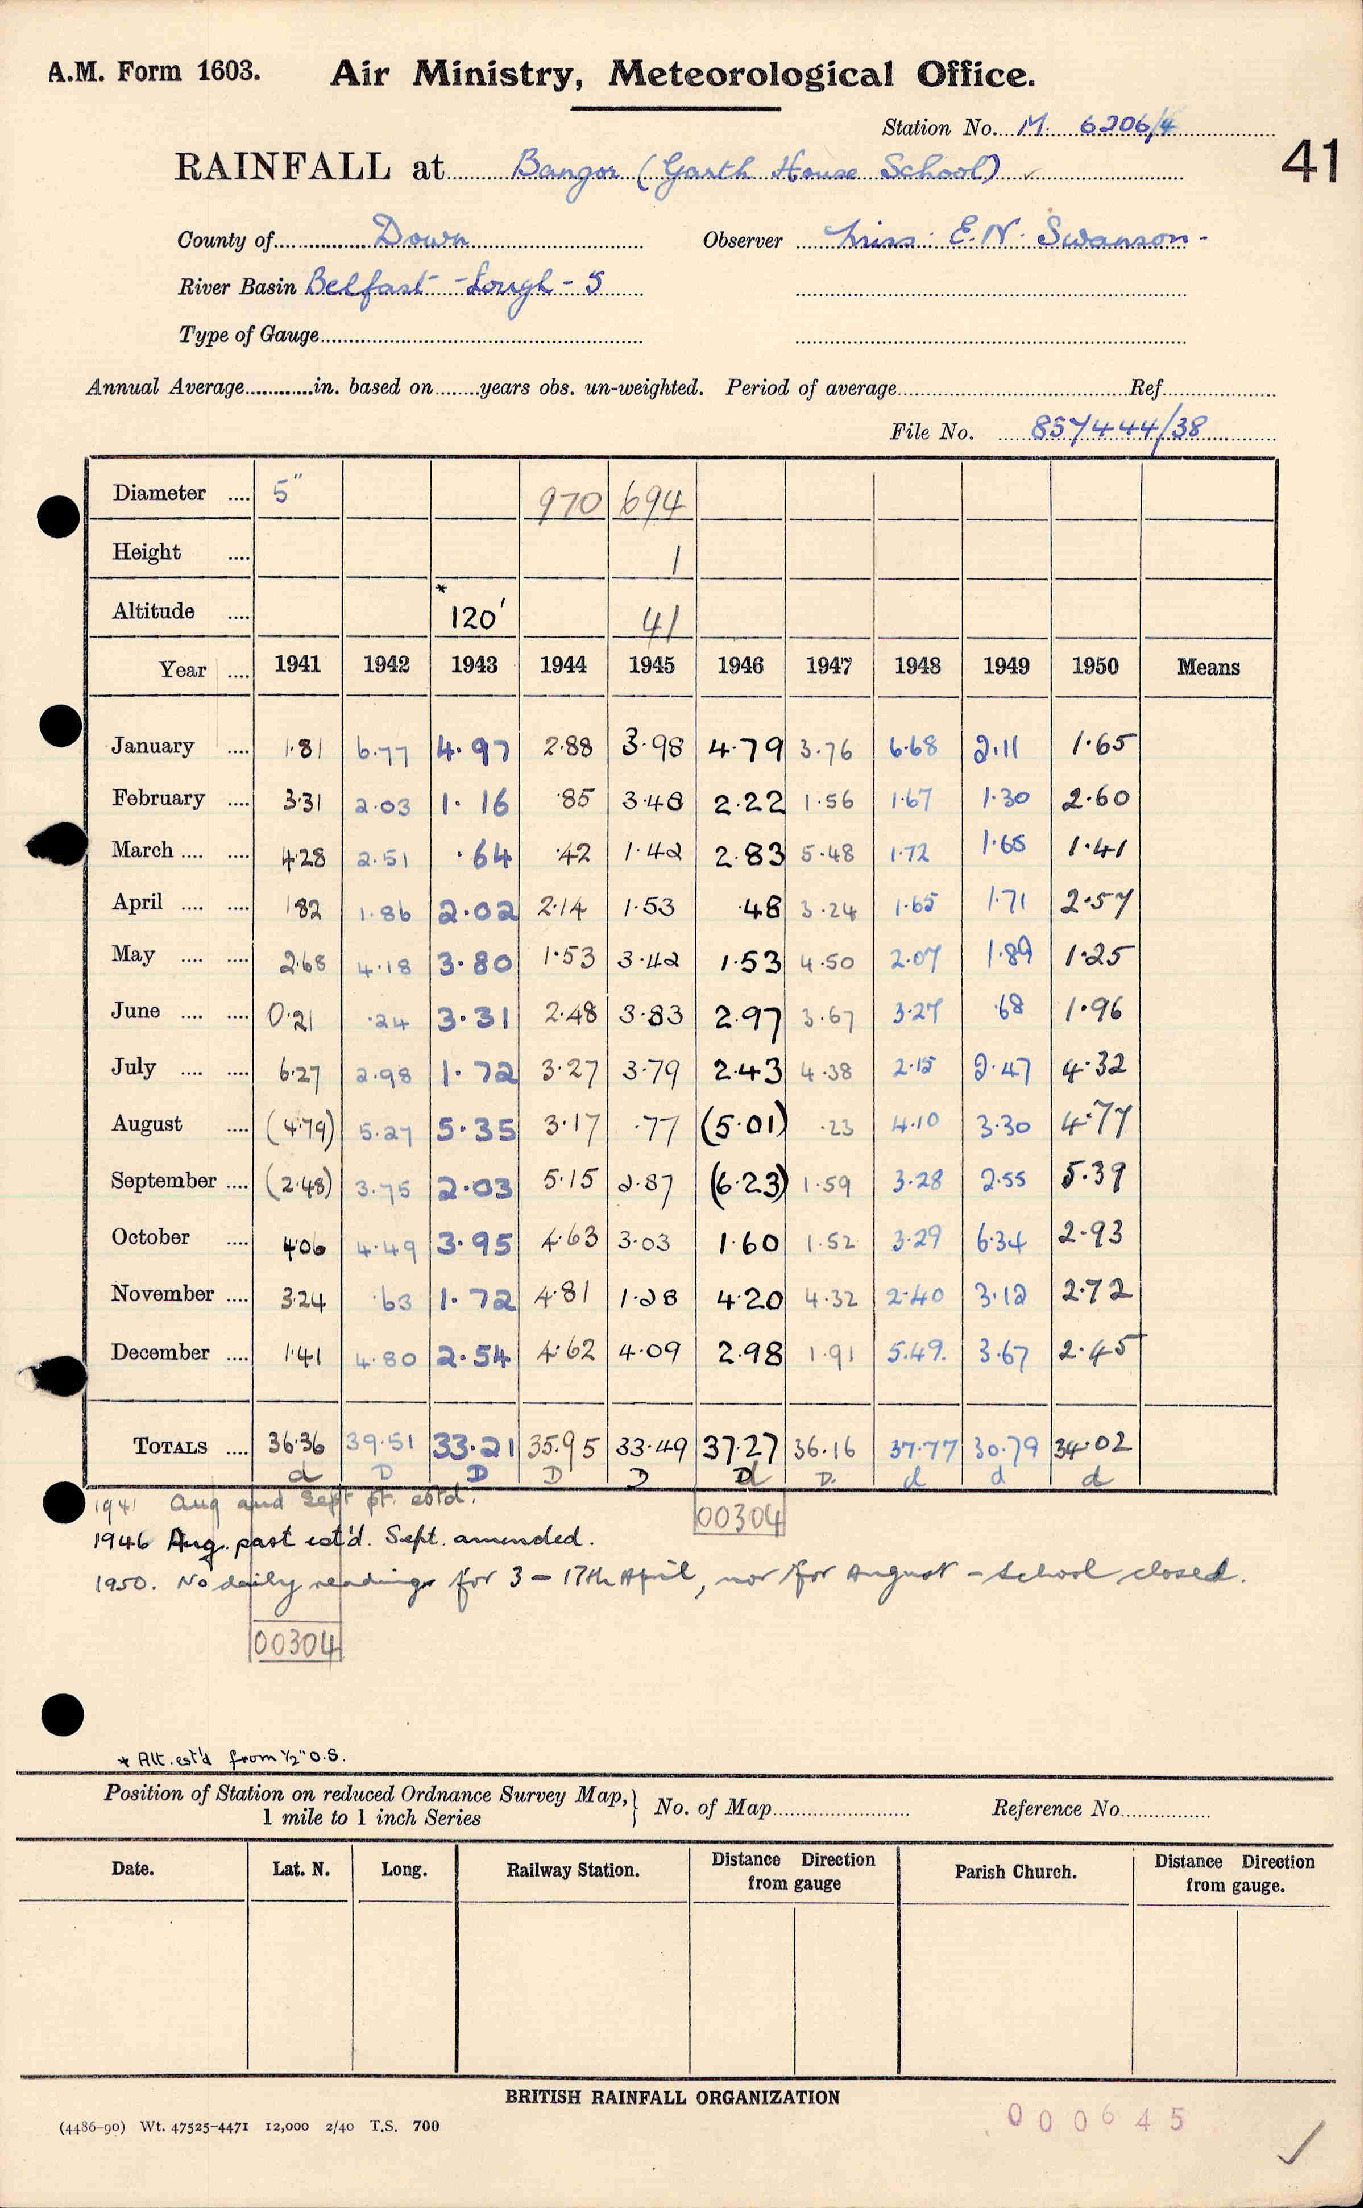 A.M. Form 1603. Air Ministry, Meteorological Office.
Station No. M. 6206/4
41
RAINFALL at Bangor (Garth House School) ✓
County of Down Observer Miss. E.N. Swanson.
River Basin Belfast - Lough - S
Type of Gauge
Annual Average in. based on years obs. un-weighted. Period of average Ref
File No. 857444/38
Diameter 5" 970 694
Height 1
Altitude *120' 41
Year 1941 1942 1943 1944 1945 1946 1947 1948 1949 1950 Means
January 1.81 6.77 4.97 2.88 3.98 4.79 3.76 6.68 2.11 1.65
February 3.31 2.03 1.16 .85 3.48 2.22 1.56 1.67 1.30 2.60
March 4.28 2.51 .64 .42 1.42 2.83 5.48 1.72 1.65 1.41
April 1.82 1.86 2.02 2.14 1.53 .48 3.24 1.65 1.71 2.57
May 2.68 4.18 3.80 1.53 3.42 1.53 4.50 2.07 1.89 1.25
June 0.21 .24 3.31 2.48 3.83 2.97 3.67 3.27 .68 1.96
July 6.27 2.98 1.72 3.27 3.79 2.43 4.38 2.15 2.47 4.32
August (4.79) 5.27 5.35 3.17 .77 (5.01) .23 4.10 3.30 4.77
September (2.48) 3.75 2.03 5.15 2.87 (6.23) 1.59 3.28 2.55 5.39
October 4.06 4.49 3.95 4.63 3.03 1.60 1.52 3.29 6.34 2.93
November 3.24 .63 1.72 4.81 1.28 4.20 4.32 2.40 3.12 2.72
December 1.41 4.80 2.54 4.62 4.09 2.98 1.91 5.49. 3.67 2.45
TOTALS 36.36 39.51 33.21 35.95 33.49 37.27 36.16 37.77 30.79 34.02
d D D D D d D. d d d
1941 Aug and Sept pt. estd.
00304
1946 Aug. past est'd. Sept. amended.
1950. No daily readings for 3 - 17th April, nor for August - School closed.
00304
* Alt. est'd from ½" O.S.
Position of Station on reduced Ordnance Survey Map, 1 mile to 1 inch Series } No. of Map Reference No.
Date. Lat. N. Long. Railway Station. Distance Direction from gauge Parish Church. Distance Direction from gauge.
BRITISH RAINFALL ORGANIZATION
(4486-90) Wt. 47525-4471 12,000 2/40 T.S. 700
000645
✓